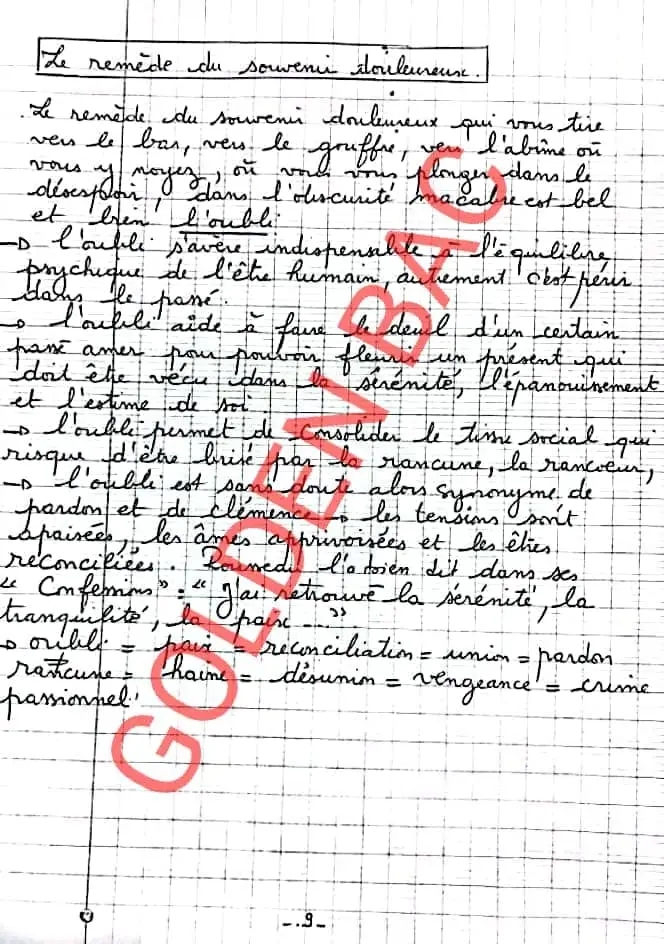 Le remède du souvenir douloureux.
. Le remède du souvenir douloureux qui vous tire
vers le bas, vers le gouffre, vers l'abîme où
vous y noyez, où vous vous plonger dans le
désespoir, dans l'obscurité macabre est bel
et bien l'oubli
→ l'oubli s'avère indispensable à l'équilibre
psychique de l'être humain, autrement c'est périr
dans le passé.
→ l'oubli aide à faire le deuil d'un certain
passé amer pour pouvoir fleurir un présent qui
doit être vécu dans la sérénité, l'épanouissement
et l'estime de soi.
→ l'oubli permet de consolider le tissu social qui
risque d'être brisé par la rancune, la rancœur,
→ l'oubli est sans doute alors synonyme de
pardon et de clémence → les tensions sont
apaisées, les âmes apprivoisées et les êtres
reconciliées. Rousseau l'a bien dit dans ses
"Confessions": "J'ai retrouvé la sérénité, la
tranquilité, la paix ---".
→ oubli = paix = réconciliation = union = pardon
rancune = haine = désunion = vengeance = crime
passionnel.
GOLDEN BAC
-.9-